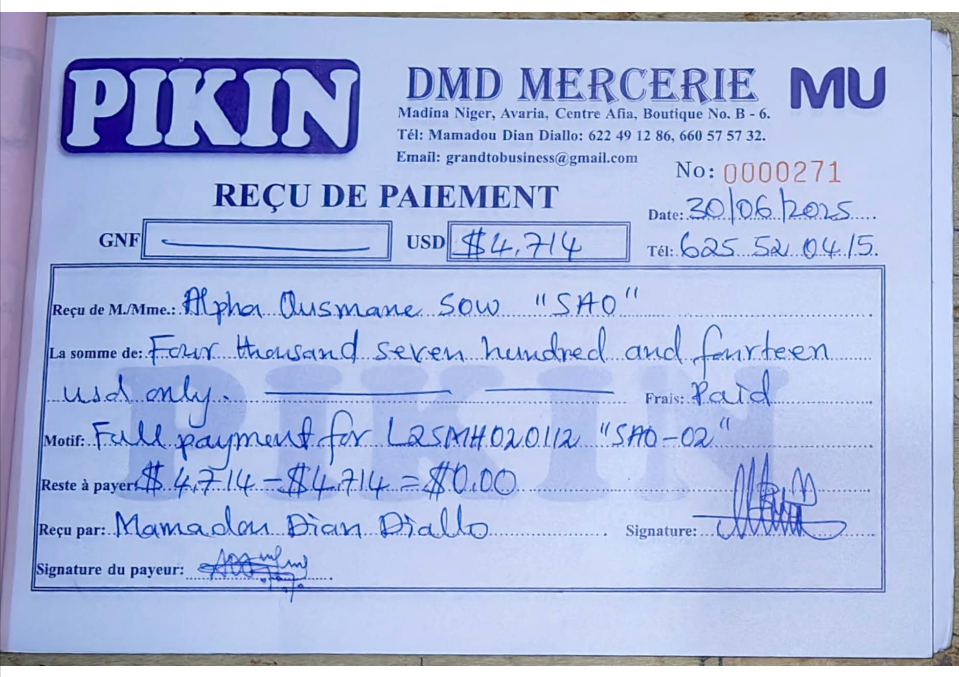 PIKIN
DMD MERCERIE
MU
Madina Niger, Avaria, Centre Afia, Boutique No. B - 6.
Tél: Mamadou Dian Diallo: 622 49 12 86, 660 57 57 32.
Email: grandtobusiness@gmail.com
No: 0000271
REÇU DE PAIEMENT
Date: 30/06/2025
GNF
USD $4,714
Tél: 625 52 04 15.
Reçu de M./Mme.: Alpha Ousmane Sow "SAO"
La somme de: Four thousand seven hundred and fourteen
usd only. Frais: Paid
Motif: Full payment for L25MH020112 "SAO-02"
Reste à payer: $4,714 - $4,714 = $0.00
Reçu par: Mamadou Dian Diallo Signature:
Signature du payeur:
PIKIN